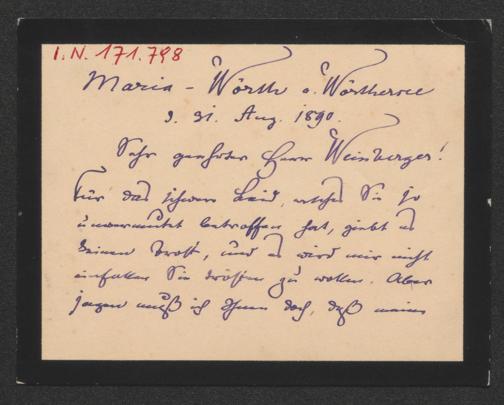 I.N. 171.798
Maria-Wörth a. Wörthersee
d. 31. Aug. 1890.
Sehr geehrter Herr Weinberger!
Für das schwere Leid, welches Sie so
unvermutet betroffen hat, giebt es
keinen Trost, und es wird mir nicht
einfallen Sie trösten zu wollen. Aber
sagen muß ich Ihnen doch, daß meine